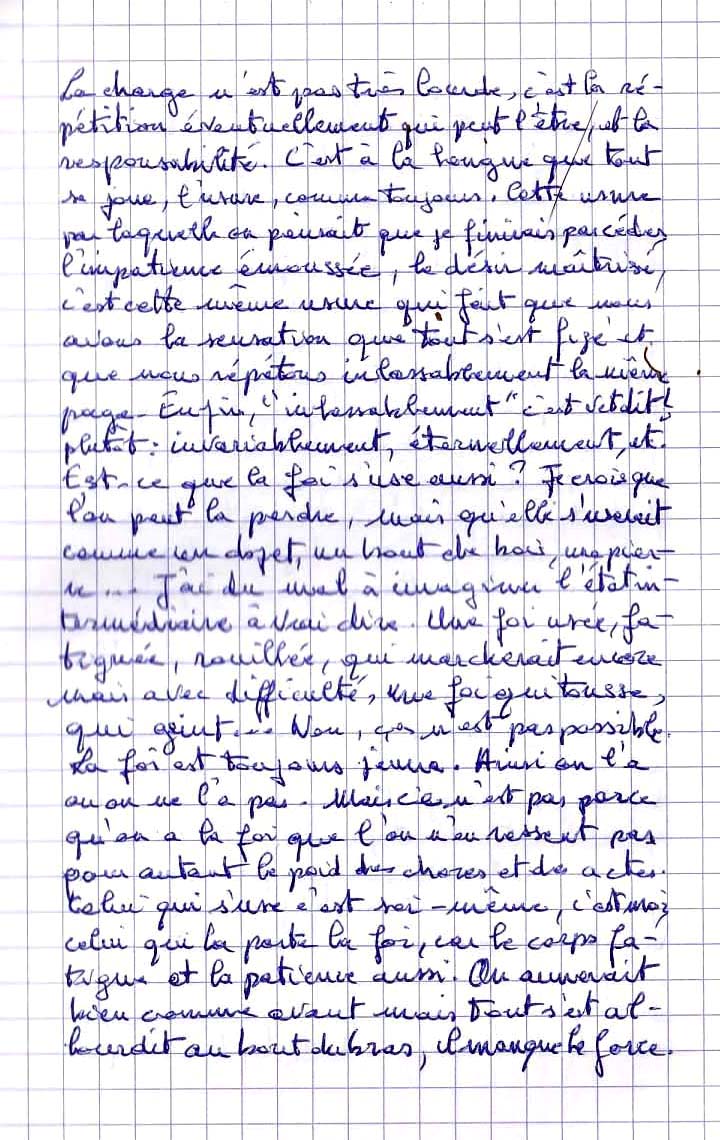 La charge n'est pas très lourde, c'est la ré-
pétition éventuellement qui peut l'être, et la
responsabilité. C'est à la longue que tout
se joue, l'usure, comme toujours. Cette usure
par laquelle on pensait que je finirais par céder,
l'impatience émoussée, le désir maîtrisé,
c'est cette même usure qui fait que nous
avons la sensation que tout s'est figé et
que nous répétons inlassablement la même
page. Enfin, "inlassablement" c'est vite dit !
plutôt : invariablement, éternellement, etc.
Est-ce que la foi s'use aussi ? Je crois que
l'on peut la perdre, mais qu'elle s'userait
comme un objet, un bout de bois, une pier-
re... J'ai du mal à imaginer l'état in-
termédiaire à vrai dire. Une foi usée, fa-
tiguée, rouillée, qui marcherait encore
mais avec difficulté, une foi qui tousse,
qui geint... Non, ça n'est pas possible.
La foi est toujours jeune. Ainsi on l'a
ou on ne l'a pas. Mais ce n'est pas parce
qu'on a la foi que l'on n'en ressent pas
pour autant le poid des choses et des actes.
Celui qui s'use c'est soi-même, c'est moi,
celui qui la porte la foi, car le corps fa-
tigue et la patience aussi. On aimerait
bien comme avant mais tout s'est al-
lourdit au bout du bras, il manque la force.